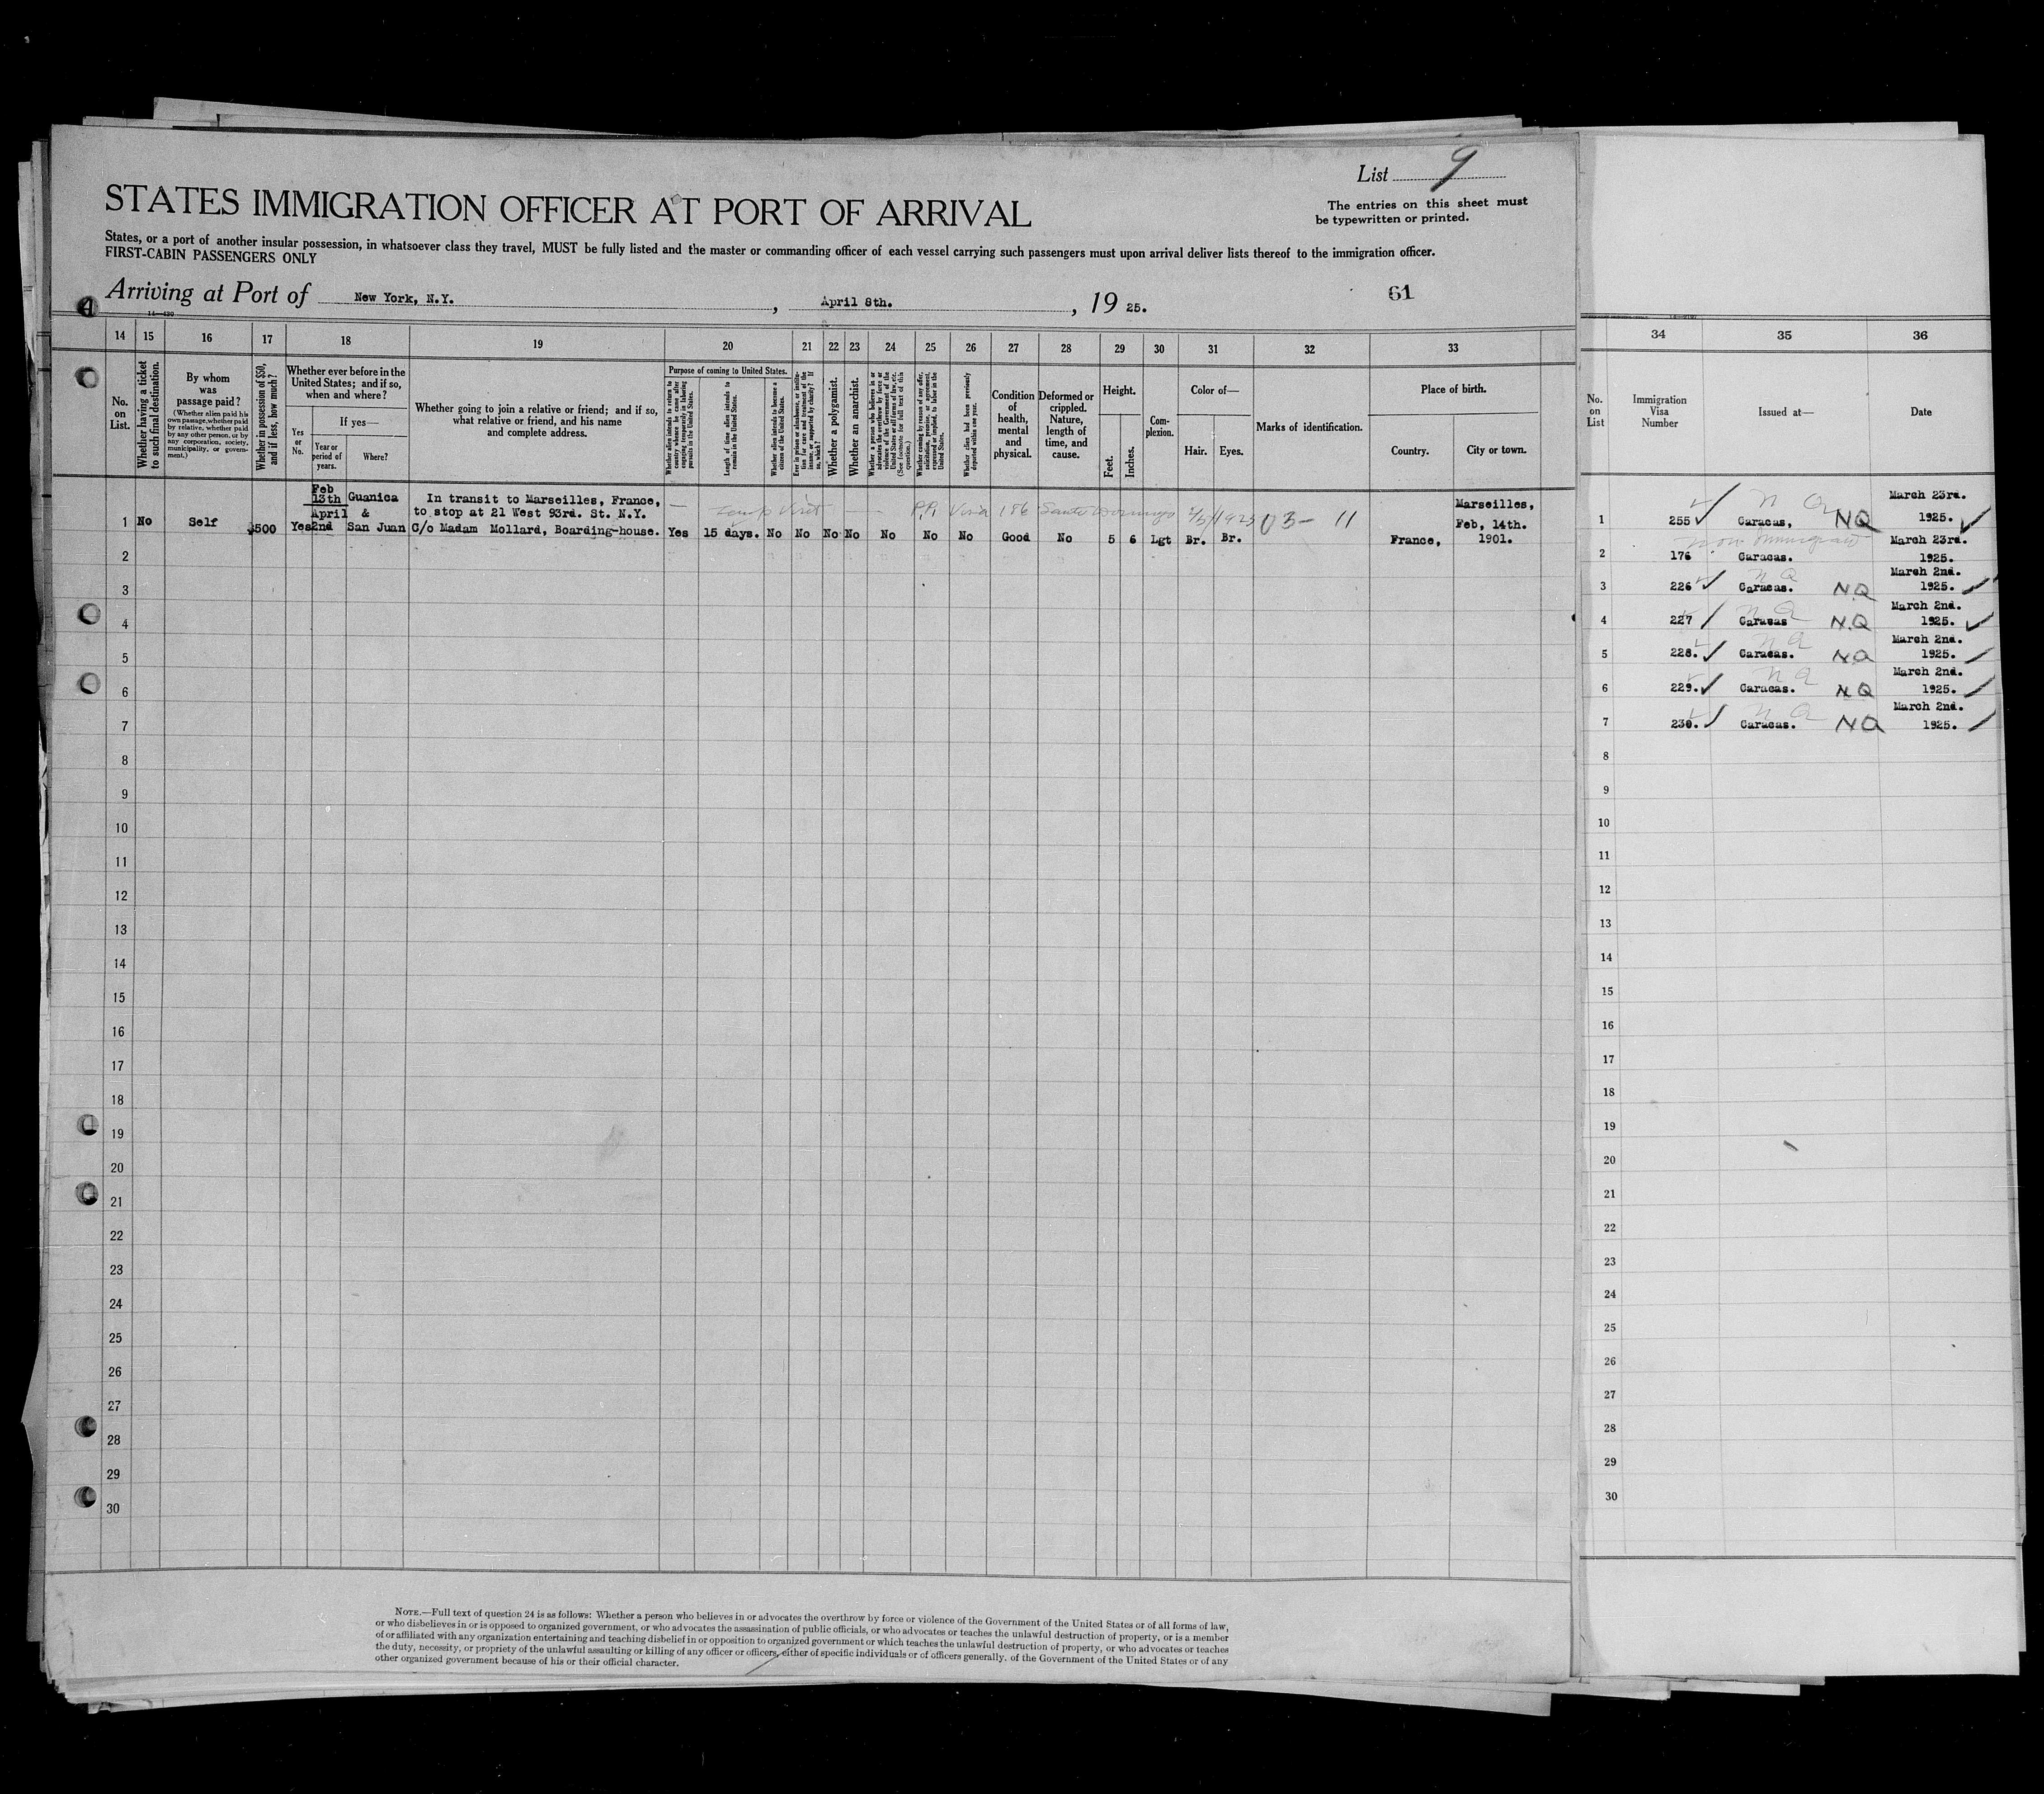 List 9
STATES IMMIGRATION OFFICER AT PORT OF ARRIVAL
The entries on this sheet must
be typewritten or printed.
States, or a port of another insular possession, in whatsoever class they travel, MUST be fully listed and the master or commanding officer of each vessel carrying such passengers must upon arrival deliver lists thereof to the immigration officer.
FIRST-CABIN PASSENGERS ONLY
Arriving at Port of New York, N.Y. , April 8th. , 19 25.
61
14 15 16 17 18 19 20 21 22 23 24 25 26 27 28 29 30 31 32 33
No. on List.
Whether having a ticket to such final destination.
By whom was passage paid?
(Whether alien paid his own passage, whether paid by relative, whether paid by any other person, or by any corporation, society, municipality, or government.)
Whether in possession of $50, and if less, how much?
Whether ever before in the United States; and if so, when and where?
Yes or No.
If yes—
Year or period of years.
Where?
Whether going to join a relative or friend; and if so, what relative or friend, and his name and complete address.
Purpose of coming to United States.
Whether alien intends to return to country whence he came after engaging temporarily in laboring pursuits in the United States.
Length of time alien intends to remain in the United States.
Whether alien intends to become a citizen of the United States.
Ever in prison or almshouse, or institution for care and treatment of the insane, or supported by charity? If so, which?
Whether a polygamist.
Whether an anarchist.
Whether a person who believes in or advocates the overthrow by force or violence of the Government of the United States or all forms of law, etc. (See footnote for full text of this question.)
Whether coming by reason of any offer, solicitation, promise, or agreement, expressed or implied, to labor in the United States.
Whether alien had been previously deported within one year.
Condition of health, mental and physical.
Deformed or crippled. Nature, length of time, and cause.
Height.
Feet.
Inches.
Complexion.
Color of—
Hair.
Eyes.
Marks of identification.
Place of birth.
Country.
City or town.
Feb
13th Guanica In transit to Marseilles, France, Marseilles,
April & to stop at 21 West 93rd. St. N.Y. Temp Visit P.P. Visa 186 Santo Domingo 03- 11 Feb, 14th.
1 No Self $500 Yes 2nd San Juan C/o Madam Mollard, Boarding-house. Yes 15 days. No No No No No No No Good No 5 6 Lgt Br. Br. France, 1901.
2
3
4
5
6
7
8
9
10
11
12
13
14
15
16
17
18
19
20
21
22
23
24
25
26
27
28
29
30
NOTE.—Full text of question 24 is as follows: Whether a person who believes in or advocates the overthrow by force or violence of the Government of the United States or of all forms of law,
or who disbelieves in or is opposed to organized government, or who advocates the assassination of public officials, or who advocates or teaches the unlawful destruction of property, or is a member
of or affiliated with any organization entertaining and teaching disbelief in or opposition to organized government or which teaches the unlawful destruction of property, or who advocates or teaches
the duty, necessity, or propriety of the unlawful assaulting or killing of any officer or officers, either of specific individuals or of officers generally, of the Government of the United States or of any
other organized government because of his or their official character.
34 35 36
No. on List
Immigration Visa Number
Issued at—
Date
1 255 Caracas, N Q NQ March 23rd. 1925.
2 176 Non Immigrant Caracas. March 23rd. 1925.
3 226 Caracas. N Q NQ March 2nd. 1925.
4 227 Caracas N Q N.Q March 2nd. 1925.
5 228. Caracas. N Q NQ March 2nd. 1925.
6 229. Caracas. N Q NQ March 2nd. 1925.
7 230. Caracas. N Q NQ March 2nd. 1925.
8
9
10
11
12
13
14
15
16
17
18
19
20
21
22
23
24
25
26
27
28
29
30